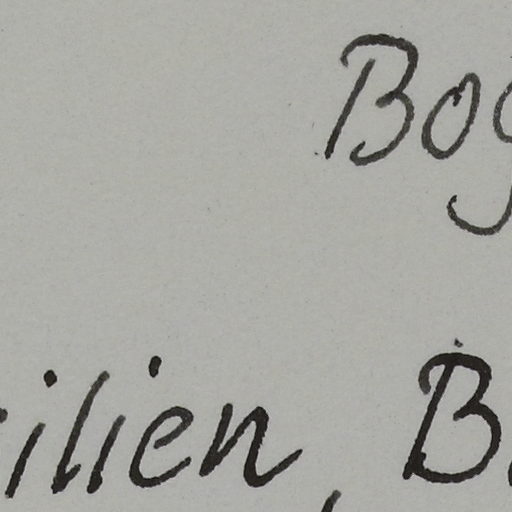 Bog
ilien, B